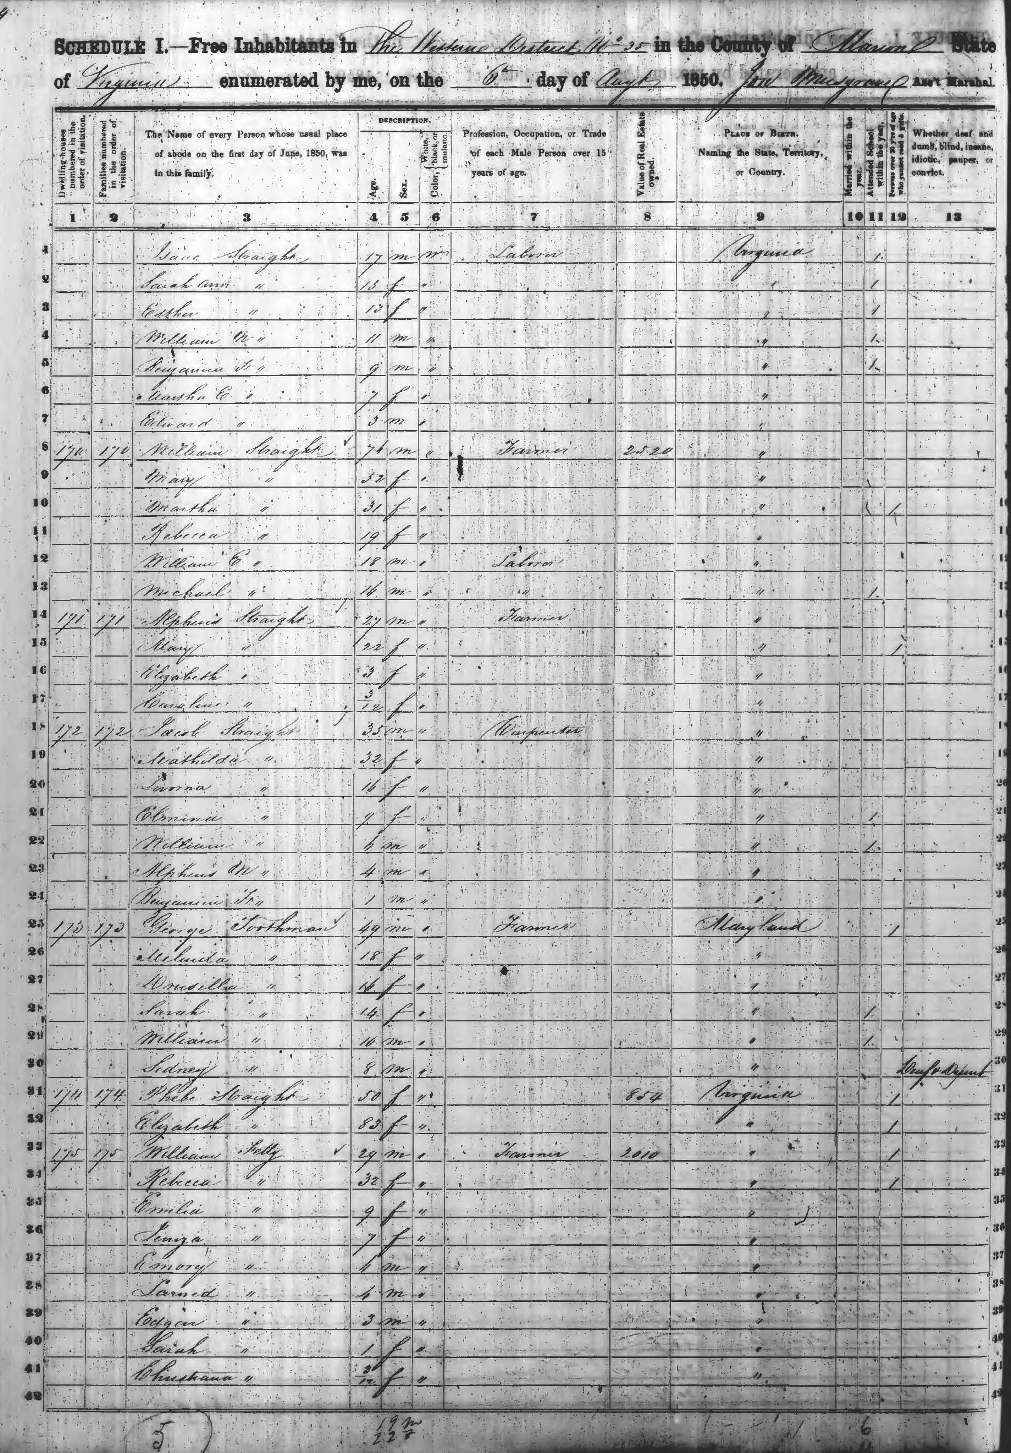 SCHEDULE I.—Free Inhabitants in The Western District No 35 in the County of Marion State
of Virginia enumerated by me, on the 6th day of Augt 1850. Musgrave Ass't Marshal.
Dwelling-houses numbered in the order of visitation.
Families numbered in the order of visitation.
The Name of every Person whose usual place of abode on the first day of June, 1850, was in this family.
DESCRIPTION.
Age.
Sex.
Color, White, black, or mulatto.
Profession, Occupation, or Trade of each Male Person over 15 years of age.
Value of Real Estate owned.
PLACE OF BIRTH. Naming the State, Territory, or Country.
Married within the year.
Attended School within the year.
Persons over 20 y'rs of age who cannot read & write.
Whether deaf and dumb, blind, insane, idiotic, pauper, or convict.
1 2 3 4 5 6 7 8 9 10 11 12 13
1 Isaac Straight 17 m w Laborer Virginia 1
2 Sarah Ann " 15 f " " 1
3 Esther " 13 f " " 1
4 William M " 11 m " " 1
5 Benjamin F " 9 m " " 1
6 Martha E " 7 f " "
7 Edward " 3 m " "
8 170 170 William Straight 76 m " Farmer 2520 "
9 Mary " 52 f " "
10 Martha " 31 f " " 1
11 Rebecca " 19 f " "
12 William E " 18 m " Laborer "
13 Michael " 16 m " " " 1
14 171 171 Alpheus Straight 27 m " Farmer "
15 Mary " 22 f " " 1
16 Elizabeth " 3 f " "
17 Caroline " 3/12 f " "
18 172 172 Jacob Straight 35 m " Carpenter "
19 Mathilda " 32 f " "
20 " 16 f " "
21 Elmina " 9 f " " 1
22 William " 6 m " " 1
23 Alpheus M " 4 m " "
24 Benjamin F " 1 m " "
25 173 173 George Toothman 49 m " Farmer Maryland 1
26 Melinda " 18 f " "
27 Drusilla " 16 f " "
28 Sarah " 14 f " " 1
29 William " 10 m " " 1
30 Sidney " 8 m " " Deaf & Dumb
31 174 174 Phebe Straight 50 f " 854 Virginia 1
32 Elizabeth " 83 f " " 1
33 175 175 William Fetty 29 m " Farmer 2010 " 1
34 Rebecca " 32 f " " 1
35 Emilia " 9 f " "
36 " 7 f " "
37 Emory " 6 m " "
38 " 4 m " "
39 Edgar " 3 m " "
40 Sarah " 1 f " "
41 Christiana " 3/12 f " "
42
5 19 m 6
22 f